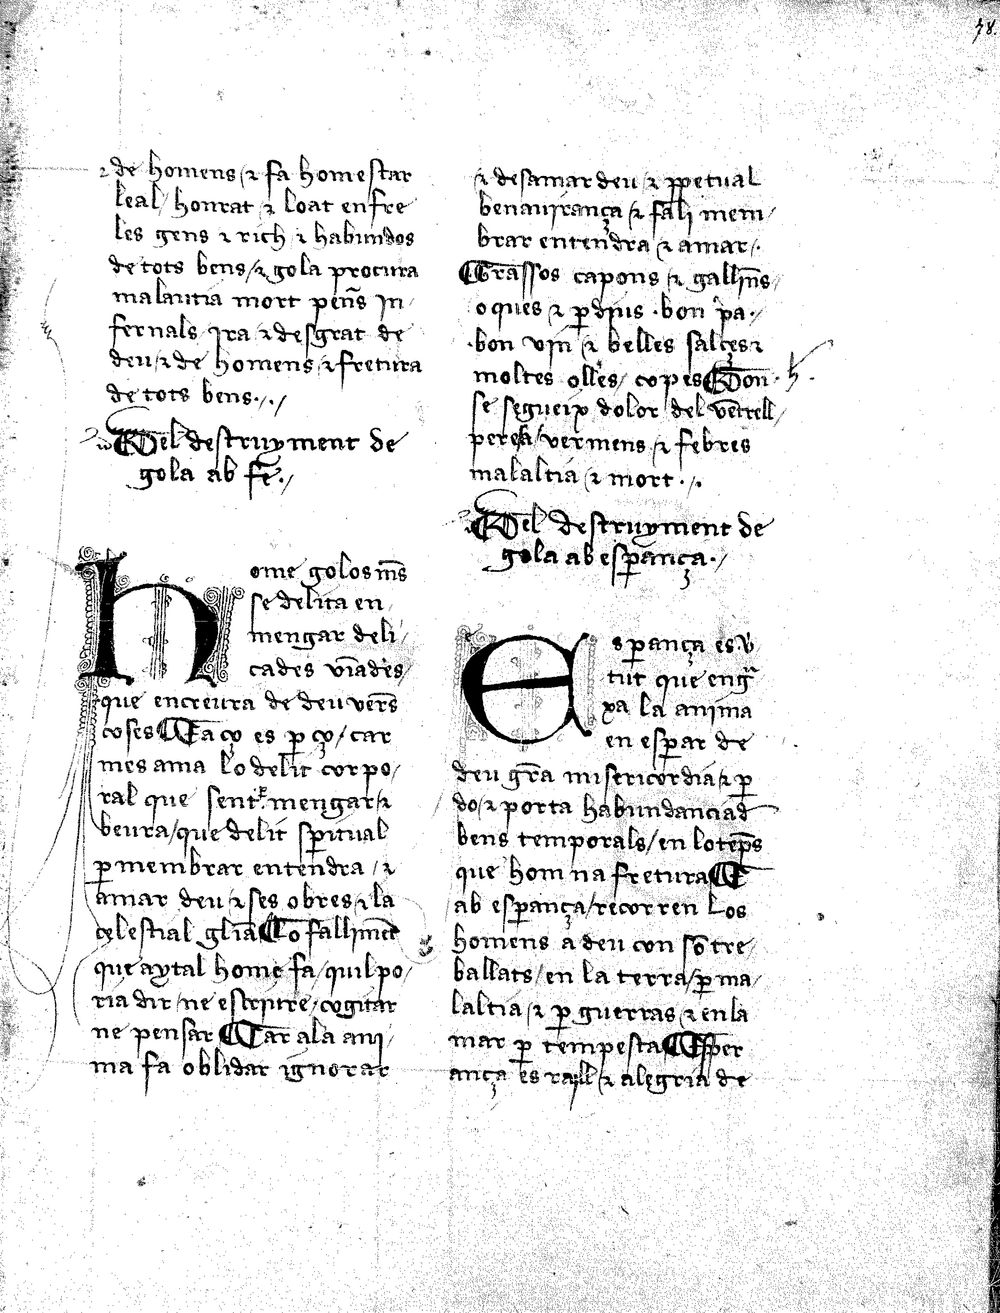 78.
⁊ de homens / ⁊ fa hom estar
leal / honrat ⁊ loat enfre
les gens ⁊ rich ⁊ habundos
de tots bens / ⁊ gola procura
malautia mort pen̄s in
fernals / ira / ⁊ desgrat de
deu / ⁊ de homens / ⁊ fretura
de tots bens . / . /
Del destruyment de
gola ab fe . /
home golos m̄s
se delita en
mengar deli /
cades viādes /
que encreura de deu vers̄
coses E aço es ꝑ ço / car
mes ama lo delit corpo /
ral que sent mengar / ⁊
beura / que delit spiritual
ꝑ membrar entendra / ⁊
amar deu / ⁊ ses obres / ⁊ la
celestial glīa Lo falliment
que aytal home fa / qui l po /
ria dir / ne escriure / cogitar
ne pensar Car a la ani /
ma fa oblidar ignorar
⁊ desamar deu / ⁊ ꝑpetual
benauirança / ⁊ fa li mem /
brar entendra / ⁊ amar / .
Grassos capons / ⁊ gallin̄s /
oques ⁊ ꝑdius . bon pa . /
. bon vin / ⁊ belles salçes ⁊
moltes olles / copes Don . h .
se segueix dolor del ventrell /
peresa / vermens / ⁊ febres
malaltia / ⁊ mort . / .
Del destruyment de
gola ab esꝑança . /
Esꝑança es v̄
tut que engr̄
xa la anima
en esꝑar de
deu grā misericordia / ⁊ ꝑ
do / ⁊ porta habundancia d
bens temporals / en lo temps
que hom na fretura E
ab esꝑança / recorren los
homens a deu con sō tre /
ballats / en la terra / ꝑ ma /
laltia / ⁊ ꝑ guerras / ⁊ en la
mar ꝑ tempesta Esper
ança es rayll / ⁊ alegria de